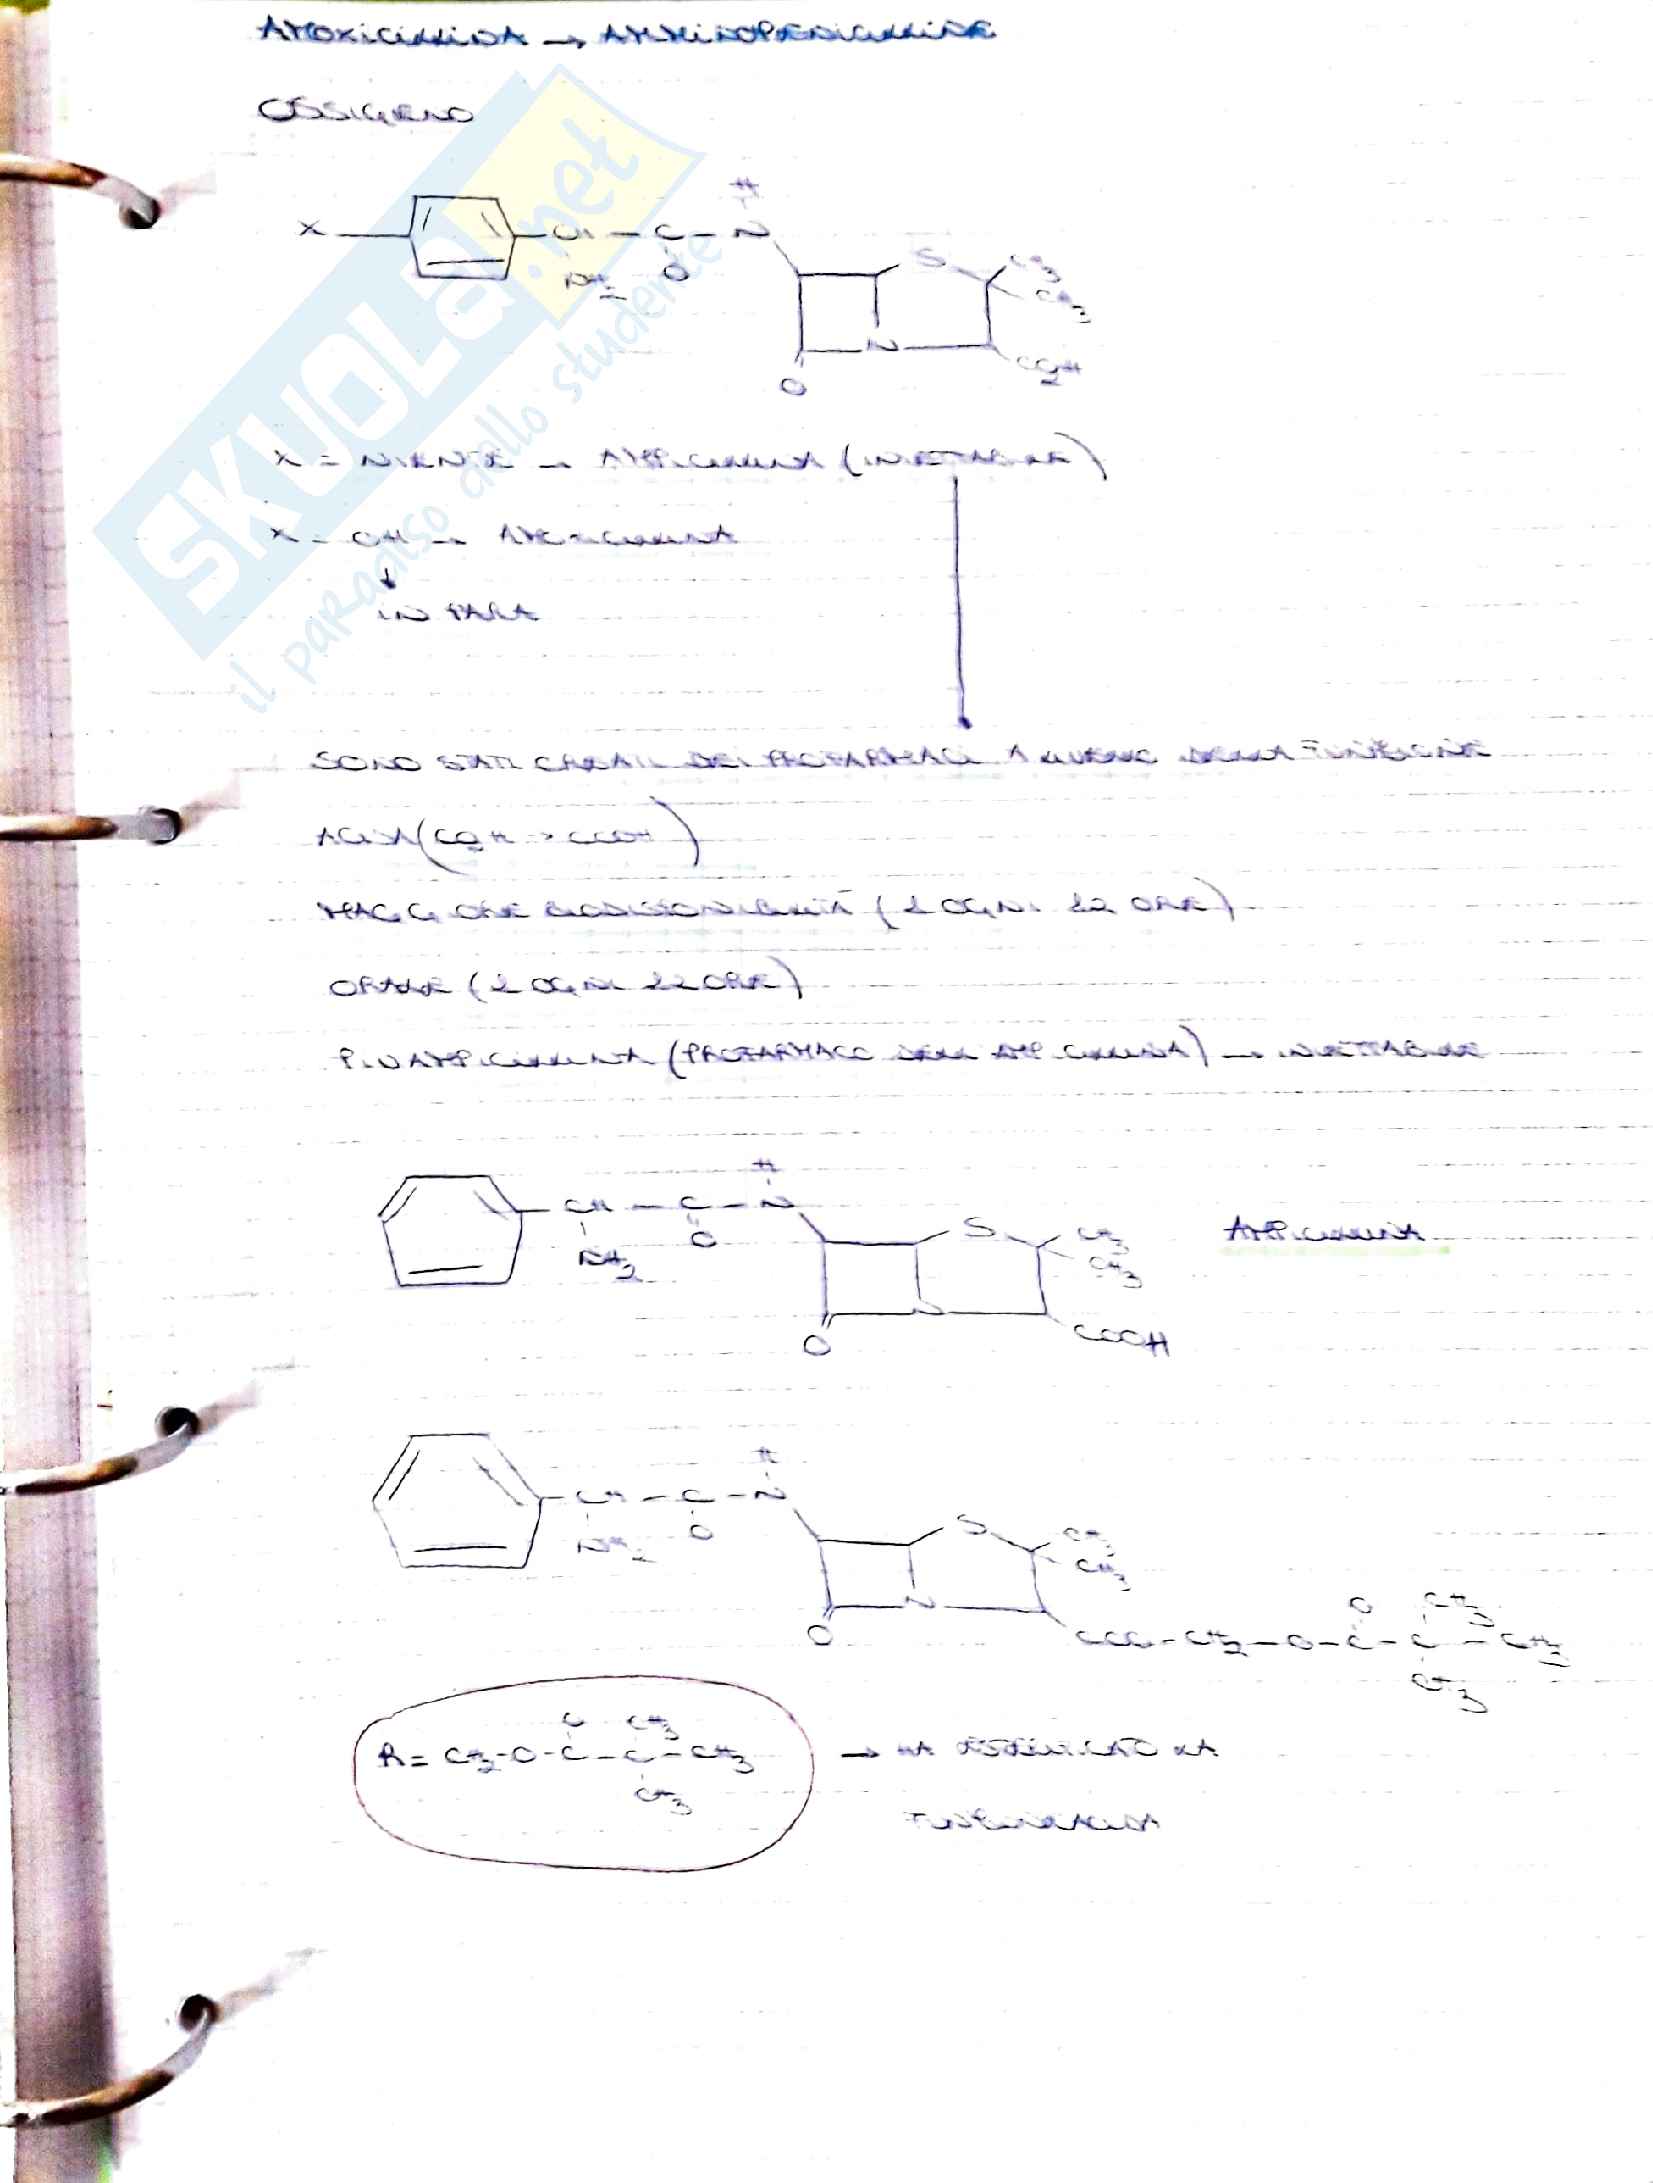 AMOXICILLINA → AMMINOPENICILLINE
OSSIGENO
X — CH – C – N H
NH2 O
S CH3
CH3
N
O CO2H
X = NIENTE → AMPICILLINA (INIETTABILE)
X = OH → AMOXICILLINA
↓
IN PARA
SONO STATI CREATI DEI PROFARMACI A LIVELLO DELLA FUNZIONE
ACIDA (CO2H → COOH)
MAGGIORE BIODISPONIBILITÀ (1 OGNI 12 ORE)
ORALE (1 OGNI 12 ORE)
PIVAMPICILLINA (PROFARMACO DELL'AMPICILLINA) → INIETTABILE
H
CH – C – N
NH2 O
S CH3
CH3
AMPICILLINA
O COOH
H
CH – C – N
NH2 O
S CH3
CH3
N
O COO – CH2 – O – C – C – CH3
O CH3
CH3
R = CH2 – O – C – C – CH3
O CH3
CH3
→ HA ESTERIFICATO LA
FUNZIONE ACIDA
SKUOLA.net
il paradiso dello studente